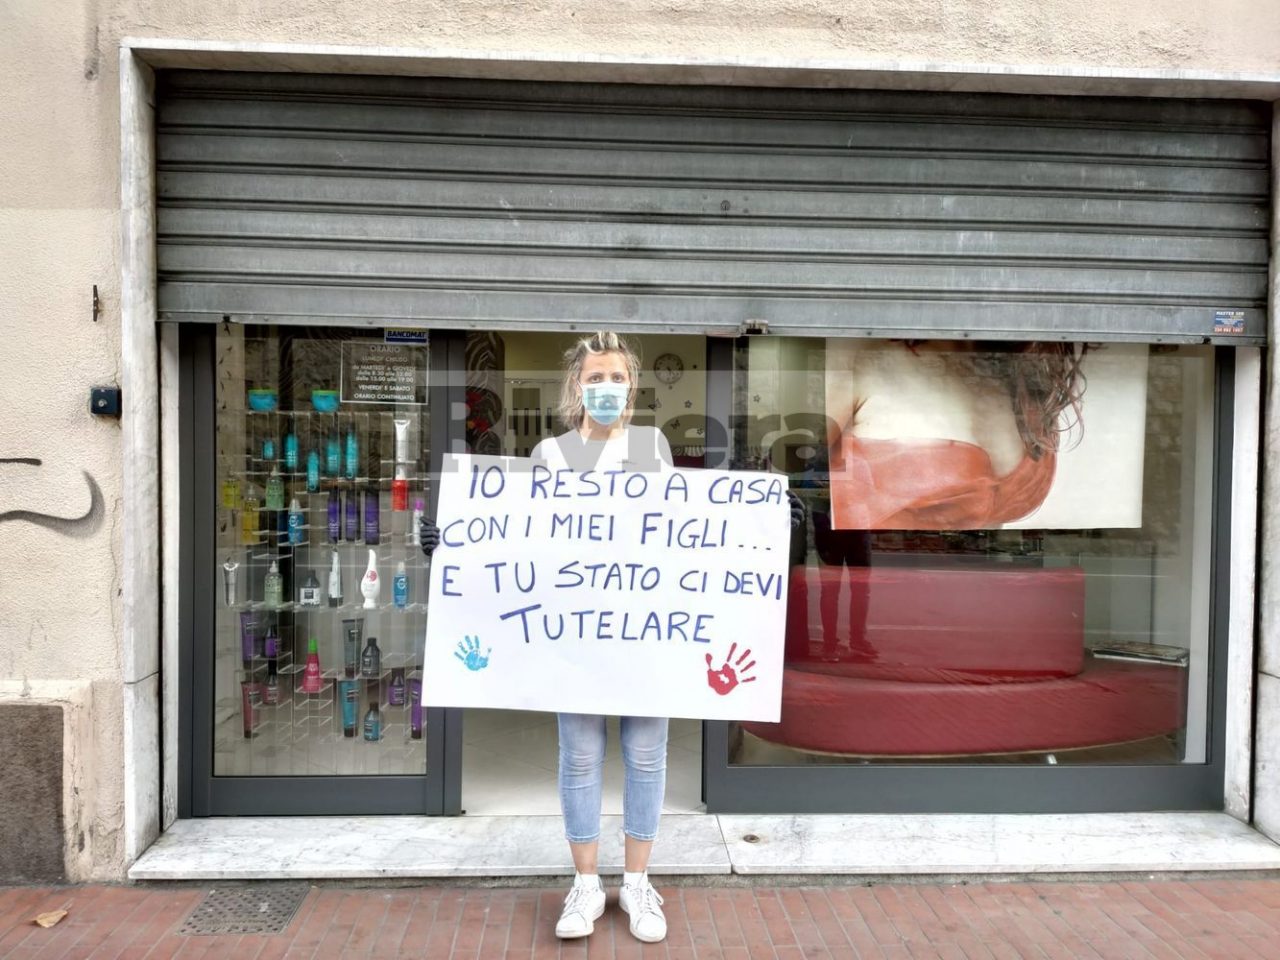 BANCOMAT
ORARIO
LUNEDI' CHIUSO
da MARTEDI' a GIOVEDI'
dalle 8.30 alle 12.00
dalle 15.00 alle 19.00
VENERDI' E SABATO
ORARIO CONTINUATO
Riviera
IO RESTO A CASA
CON I MIEI FIGLI...
E TU STATO CI DEVI
TUTELARE